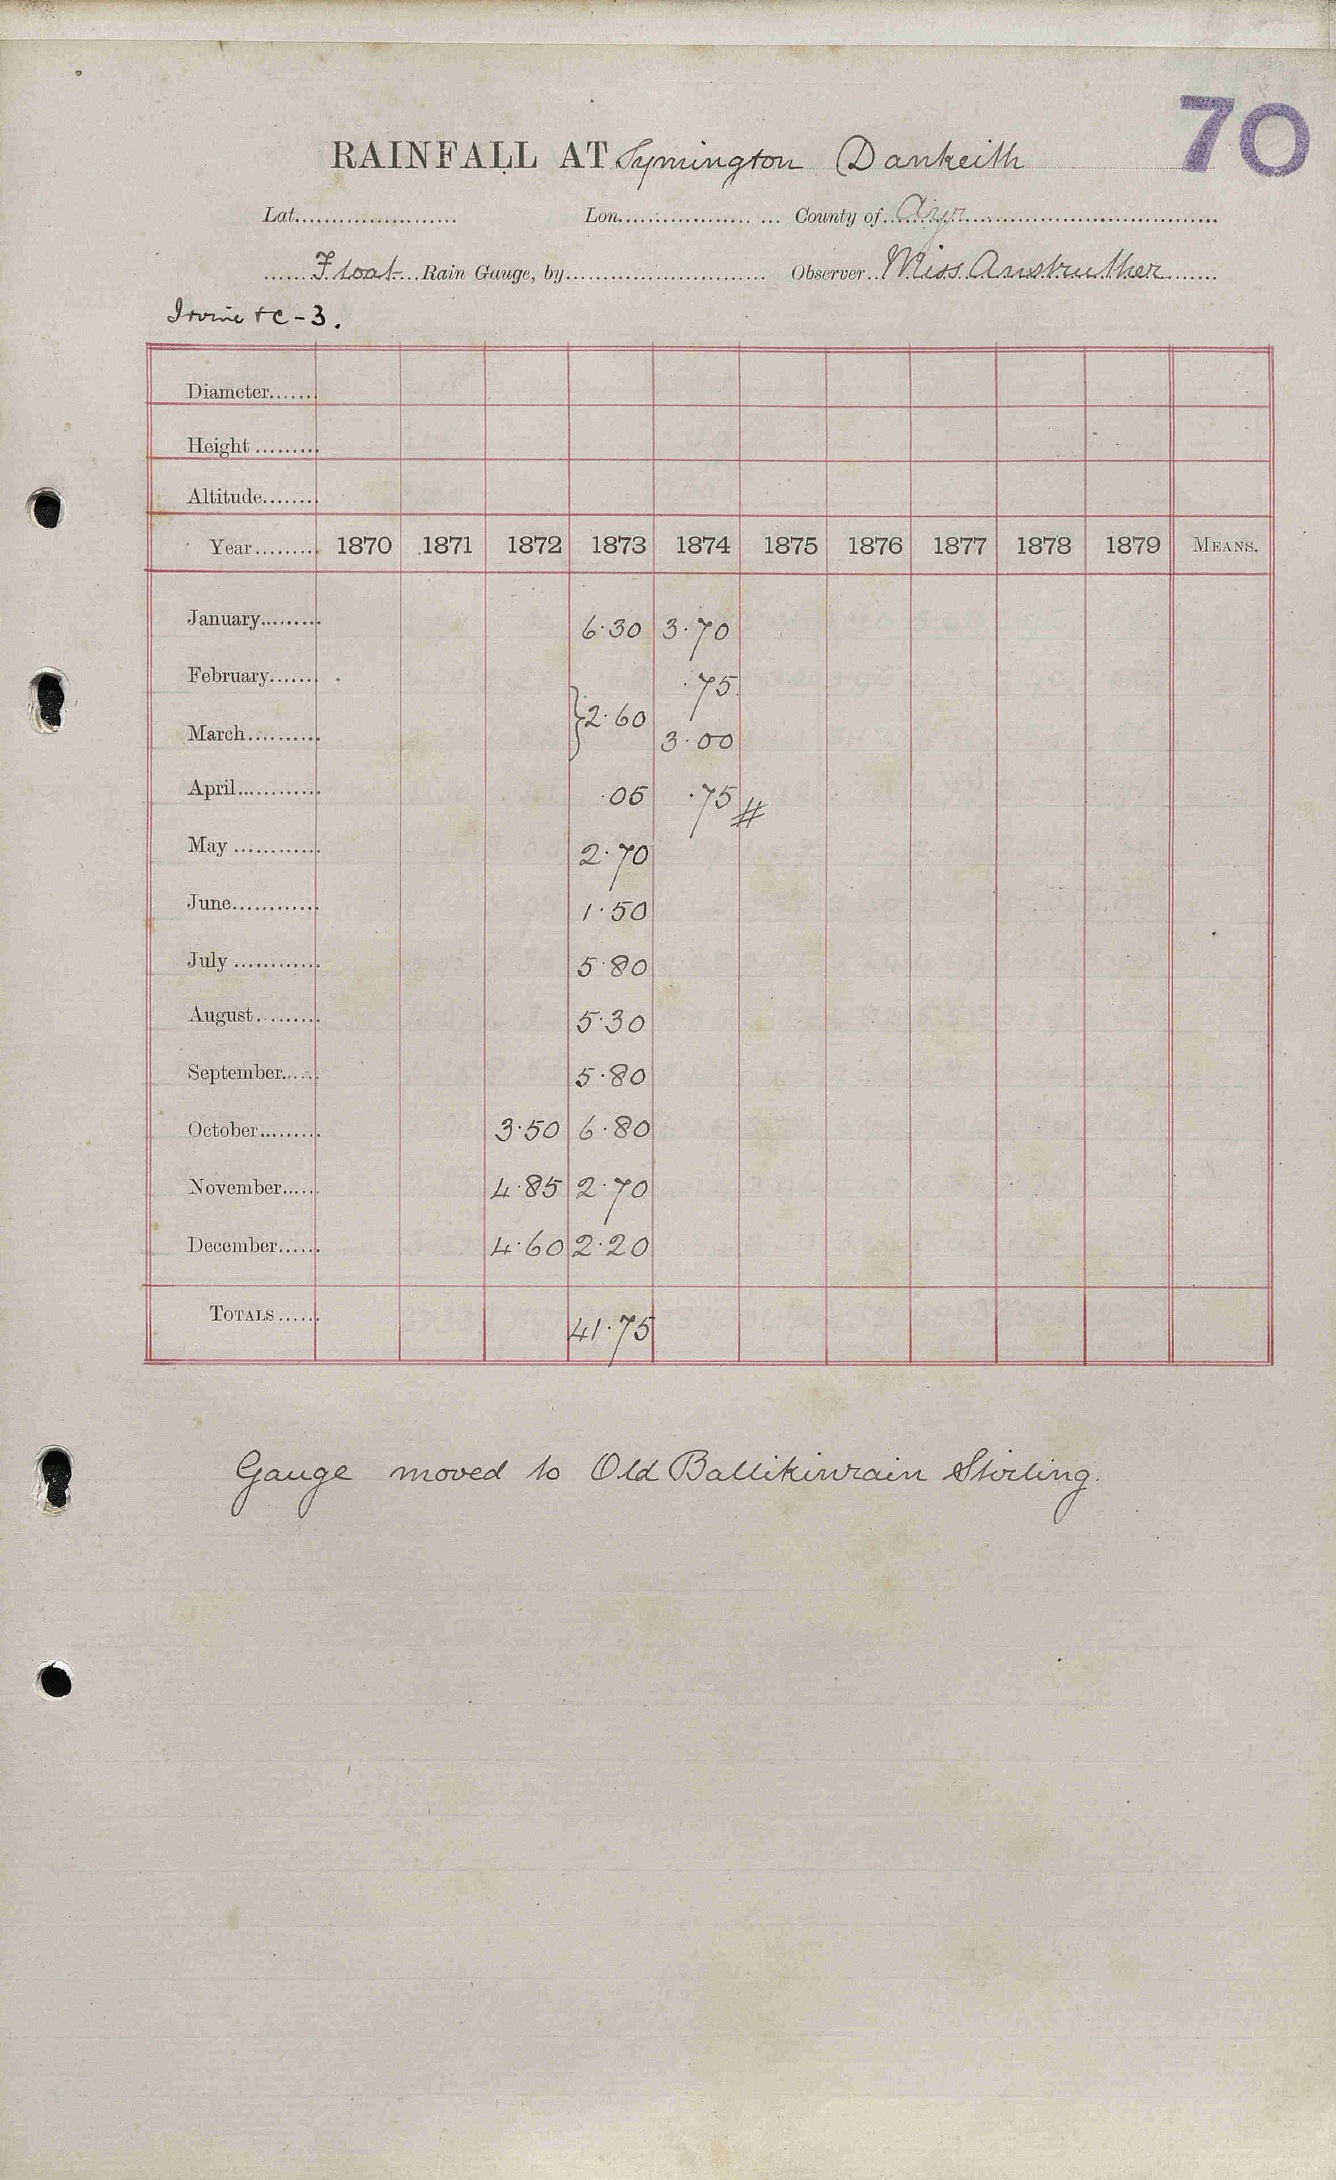 70
RAINFALL AT Symington Dankeith
Lat...................... Lon...................... County of Ayr
Float Rain Gauge, by........................... Observer Miss Anstruther
Irvine &c - 3.
Diameter.......
Height .........
Altitude........
Year......... 1870 1871 1872 1873 1874 1875 1876 1877 1878 1879 MEANS.
January......... 6·30 3·70
February....... ·75
} 2·60
March.......... 3·00
April............ ·05 ·75 #
May ............ 2·70
June............ 1·50
July ............ 5·80
August......... 5·30
September...... 5·80
October......... 3·50 6·80
November...... 4·85 2·70
December...... 4·60 2·20
TOTALS...... 41·75
Gauge moved to Old Ballikinrain Stirling.